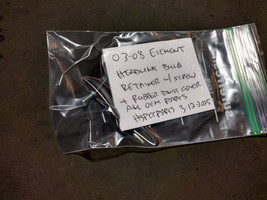 03-08 ELEMENT
HEADLIGHT BULB
RETAINER W/ SCREW
+ RUBBER DUST COVER
ALL OEM PARTS
HSPECPARTS 3/12/2025